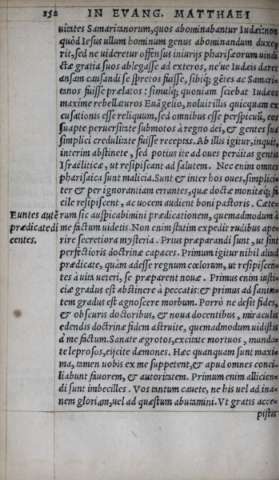 252 IN EVANG. MATTHAEI
uitates Samaritanorum, quos abominabantur Iudæi: non
quòd Iesus ullum hominum genus abominandum duxe-
rit, sed ne uideretur offensus iniurijs pharisæorum uindi-
ctæ gratia suos ablegasse ad exteros, ne ue Iudæis daret
ansam causandi se spretos fuisse, sibiq; gētes ac Samari-
tanos fuisse prælatos: simulq; quoniam sciebat Iudæos
maxime rebellaturos Euāgelio, noluit illis quicquam ex
cusationis esse reliquum, sed omnibus esse perspicuū, eos
suapte peruersitate submotos à regno dei, & gentes sua
simplici credulitate fuisse receptas. Ab illis igitur, inquit,
interim abstinete, sed potius ite ad oues perditas gentis
Israëliticæ, ut resipiscant ad salutem. Nec enim omnes
pharisaica sunt malicia. Sunt & inter hos oues, simplici-
ter & per ignorantiam errantes, quæ doctæ monitæq; fa
cile resipiscent, ac uocem audient boni pastoris. Cæte-
Euntes autē rum sic auspicabimini prædicationem, quemadmodum à
prædicate di me factum uidetis. Non enim statim expedit rudibus ape-
centes. rire secretiora mysteria. Prius præparandi sunt, ut sint
perfectioris doctrinæ capaces. Primum igitur nihil aliud
prædicate, quàm adesse regnum cœlorum, ut resipiscen-
tes à uita ueteri, se præparent nouæ. Primus enim iusti-
ciæ gradus est abstinere à peccatis: & primus ad sanita-
tem gradus est agnoscere morbum. Porrò ne desit fides,
& obscuris doctoribus, & noua docentibus, miraculis
edendis doctrinæ fidem astruite, quemadmodum uidistis
à me fictum. Sanate ægrotos, excitate mortuos, munda-
te leprosos, eijcite dæmones. Hæc quanquam sunt maxi-
ma, tamen uobis ex me suppetent, & apud omnes conci-
liabunt fauorem, & autoritatem. Primum enim alliciendi
di sunt imbecilles. Vos tantum cauete, ne his uel ad ina-
nem gloriam, uel ad quæstum abutamini. Vt gratis acce-
pistis